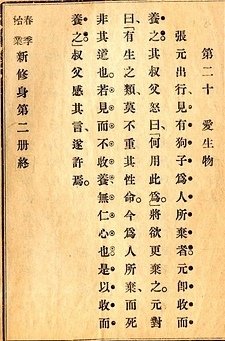 第二十　愛生物
張元出行、見有狗子爲人所棄者。元卽收而
養之。其叔父怒曰「何用此爲」將欲更棄之。元對
曰、「有生之類莫不重其性命。今爲人所棄而死
非其道也。若見而不收養無仁心也。是以收而
養之」叔父感其言、遂許焉。
春季始業 新修身第二册終